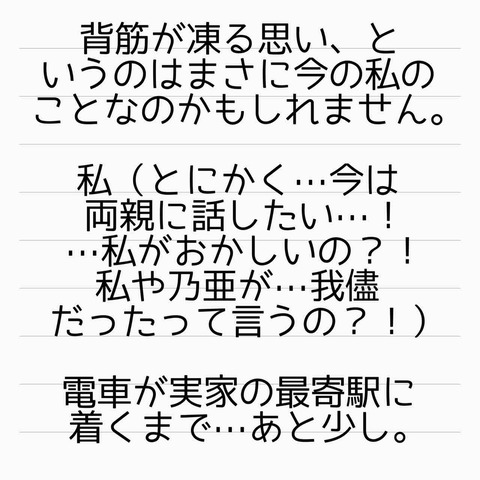 背筋が凍る思い、と
いうのはまさに今の私の
ことなのかもしれません。
私（とにかく…今は
両親に話したい…！
…私がおかしいの？！
私や乃亜が…我儘
だったって言うの？！）
電車が実家の最寄駅に
着くまで…あと少し。